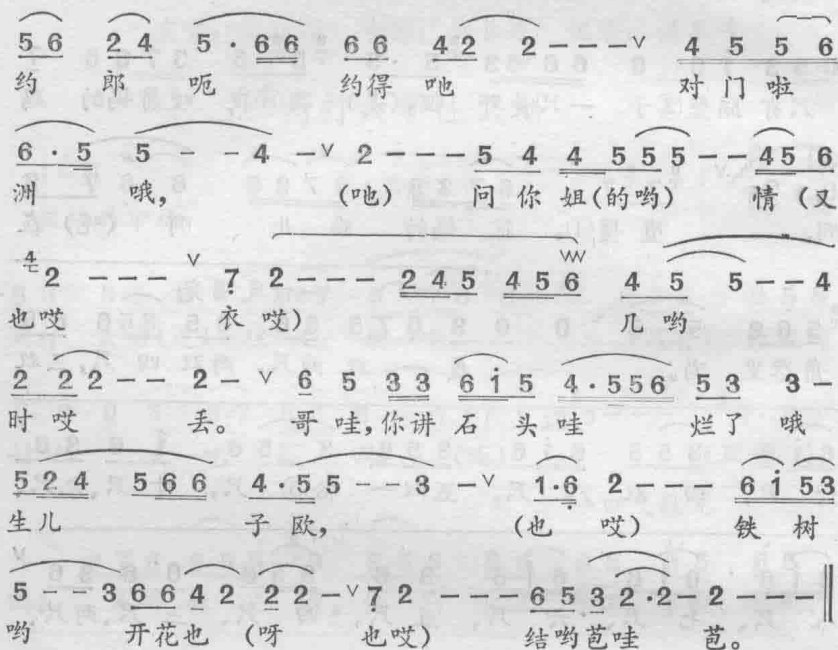 5 6 2 4 5 · 6 6 6 6 4 2 2 - - - ∨ 4 5 5 6
约 郎 呃 约得 吔 对 门 啦
6 · 5 5 - - 4 - ∨ 2 - - - 5 4 4 5 5 5 5 - - 4 5 6
洲 哦, (吔) 问 你 姐(的哟) 情 (又
4 2 - - - ∨ 7 2 - - - 2 4 5 4 5 6 4 5 5 - - 4
也哎 衣 哎) 几 哟
2 2 2 - - 2 - ∨ 6 5 3 3 6 i 5 4 · 5 5 6 5 3 3 -
时 哎 丢。 哥 哇, 你讲 石 头 哇 烂了 哦
5 2 4 5 6 6 4 · 5 5 - - - 3 - ∨ 1 · 6 2 - - - 6 i 5 3
生儿 子 欧, (也 哎) 铁 树
5 - - 3 6 6 4 2 2 2 - ∨ 7 2 - - - 6 5 3 2 · 2 - 2 - - -
哟 开花也 (呀 也哎) 结哟苞哇 苞。